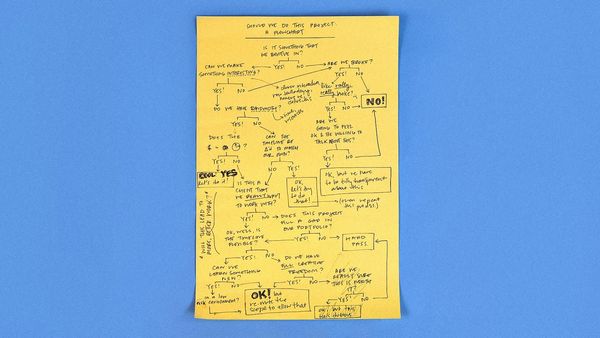 SHOULD WE DO THIS PROJECT
A FLOWCHART
IS IT SOMETHING THAT
WE BELIEVE IN?
YES! NO
CAN WE MAKE
SOMETHING INTERESTING?
YES! NO
ARE WE BROKE?
YES! NO
like really,
really broke?
YES! NO
NO!
DO WE HAVE BANDWIDTH?
YES! NO
ARE WE
GOING TO FEEL
OK & BE WILLING TO
TALK ABOUT THIS?
YES! NO
DOES THE
?
YES! NO
CAN THE
TIMELINE OR
TO MATCH
OUR
NO YES!
COOL YES
let's do it!
OK,
let's try
to do
that!
OK, but we have
to be fully transparent
about this
IS THIS A
CLIENT THAT
WE REALLY WANT
TO WORK WITH?
YES! NO
DOES THIS PROJECT
FILL A GAP IN
OUR PORTFOLIO?
YES! NO
HARD
PASS.
OK, WELL, IS
THE TIMELINE
FLEXIBLE?
YES! NO
DO WE HAVE
FULL CREATIVE
FREEDOM?
YES! NO
CAN WE
LEARN SOMETHING
NEW?
YES! NO
in a low
risk environment?
OK! but
re-make the
scope to allow that
ARE WE
SURE
THIS IS
IT?
YES! NO
OK, but this
* WILL THIS LEAD TO
MORE, BETTER WORK? *